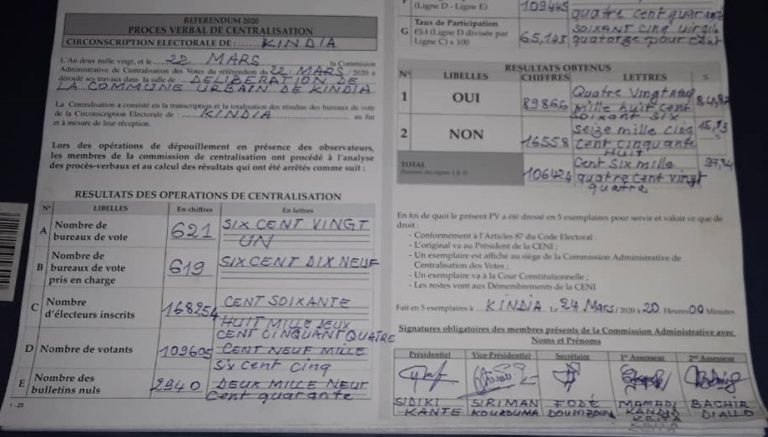 REFERENDUM 2020
PROCES VERBAL DE CENTRALISATION
CIRCONSCRIPTION ELECTORALE DE : KINDIA
L'An deux mille vingt, et le 22 MARS la Commission
Administrative de Centralisation des Votes du référendum du 22 MARS 2020 a
débuté ses travaux dans la salle de DELIBERATION DE
LA COMMUNE URBAIN DE KINDIA
La Centralisation a consisté en la transcription et la totalisation des résultats des bureaux de vote
de la Circonscription Electorale de : KINDIA au fur
et à mesure de leur réception.
Lors des opérations de dépouillement en présence des observateurs,
les membres de la commission de centralisation ont procédé à l'analyse
des procès-verbaux et au calcul des résultats qui ont été arrêtés comme suit :
RESULTATS DES OPERATIONS DE CENTRALISATION
N° LIBELLES En chiffres En lettres
A Nombre de bureaux de vote 621 SIX CENT VINGT
UN
B Nombre de bureaux de vote pris en charge 619 SIX CENT DIX NEUF
C Nombre d'électeurs inscrits 168254 CENT SOIXANTE
HUIT MILLE DEUX
CENT CINQUANT QUATRE
D Nombre de votants 109605 CENT NEUF MILLE
Six cent cinq
E Nombre des bulletins nuls 2940 DEUX MILLE NEUF
Cent quarante
1 - 25
(Ligne D - Ligne E) 109445 quatre cent quaran
G Taux de Participation
(%) (Ligne D divisée par
Ligne C) x 100 65,145 soixant cinq virgil
quatorze pour cent
RESULTATS OBTENUS
N° LIBELLES CHIFFRES LETTRES
1 OUI 89866 Quatre vingt neuf
mille huit cent
soixant six
2 NON 16558 Seize mille cinq
cent cinquante
HUIT
TOTAL 106424 Cent six mille
quatre cent vingt
quatre
En foi de quoi le présent PV a été dressé en 5 exemplaires pour servir et valoir ce que de
droit :
- Conformément à l'Articles 87 du Code Electoral
- L'original va au Président de la CENI ;
- Un exemplaire est affiché au siège de la Commission Administrative de
Centralisation des Votes ;
- Un exemplaire va à la Cour Constitutionnelle ;
- Les restes vont aux Démembrements de la CENI
Fait en 5 exemplaires à KINDIA, le 24 Mars / 2020 à 20 Heures 00 Minutes
Signatures obligatoires des membres présents de la Commission Administrative avec
Noms et Prénoms
Président(e) Vice-Président(e) Secrétaire 1er Assesseur 2ème Assesseur
SIDIKI SIRIMAN FODÉ MAMADI BACHIR
KANTE KOUROUMA DOUMBOUYA KANDIA DIALLO
KEITA